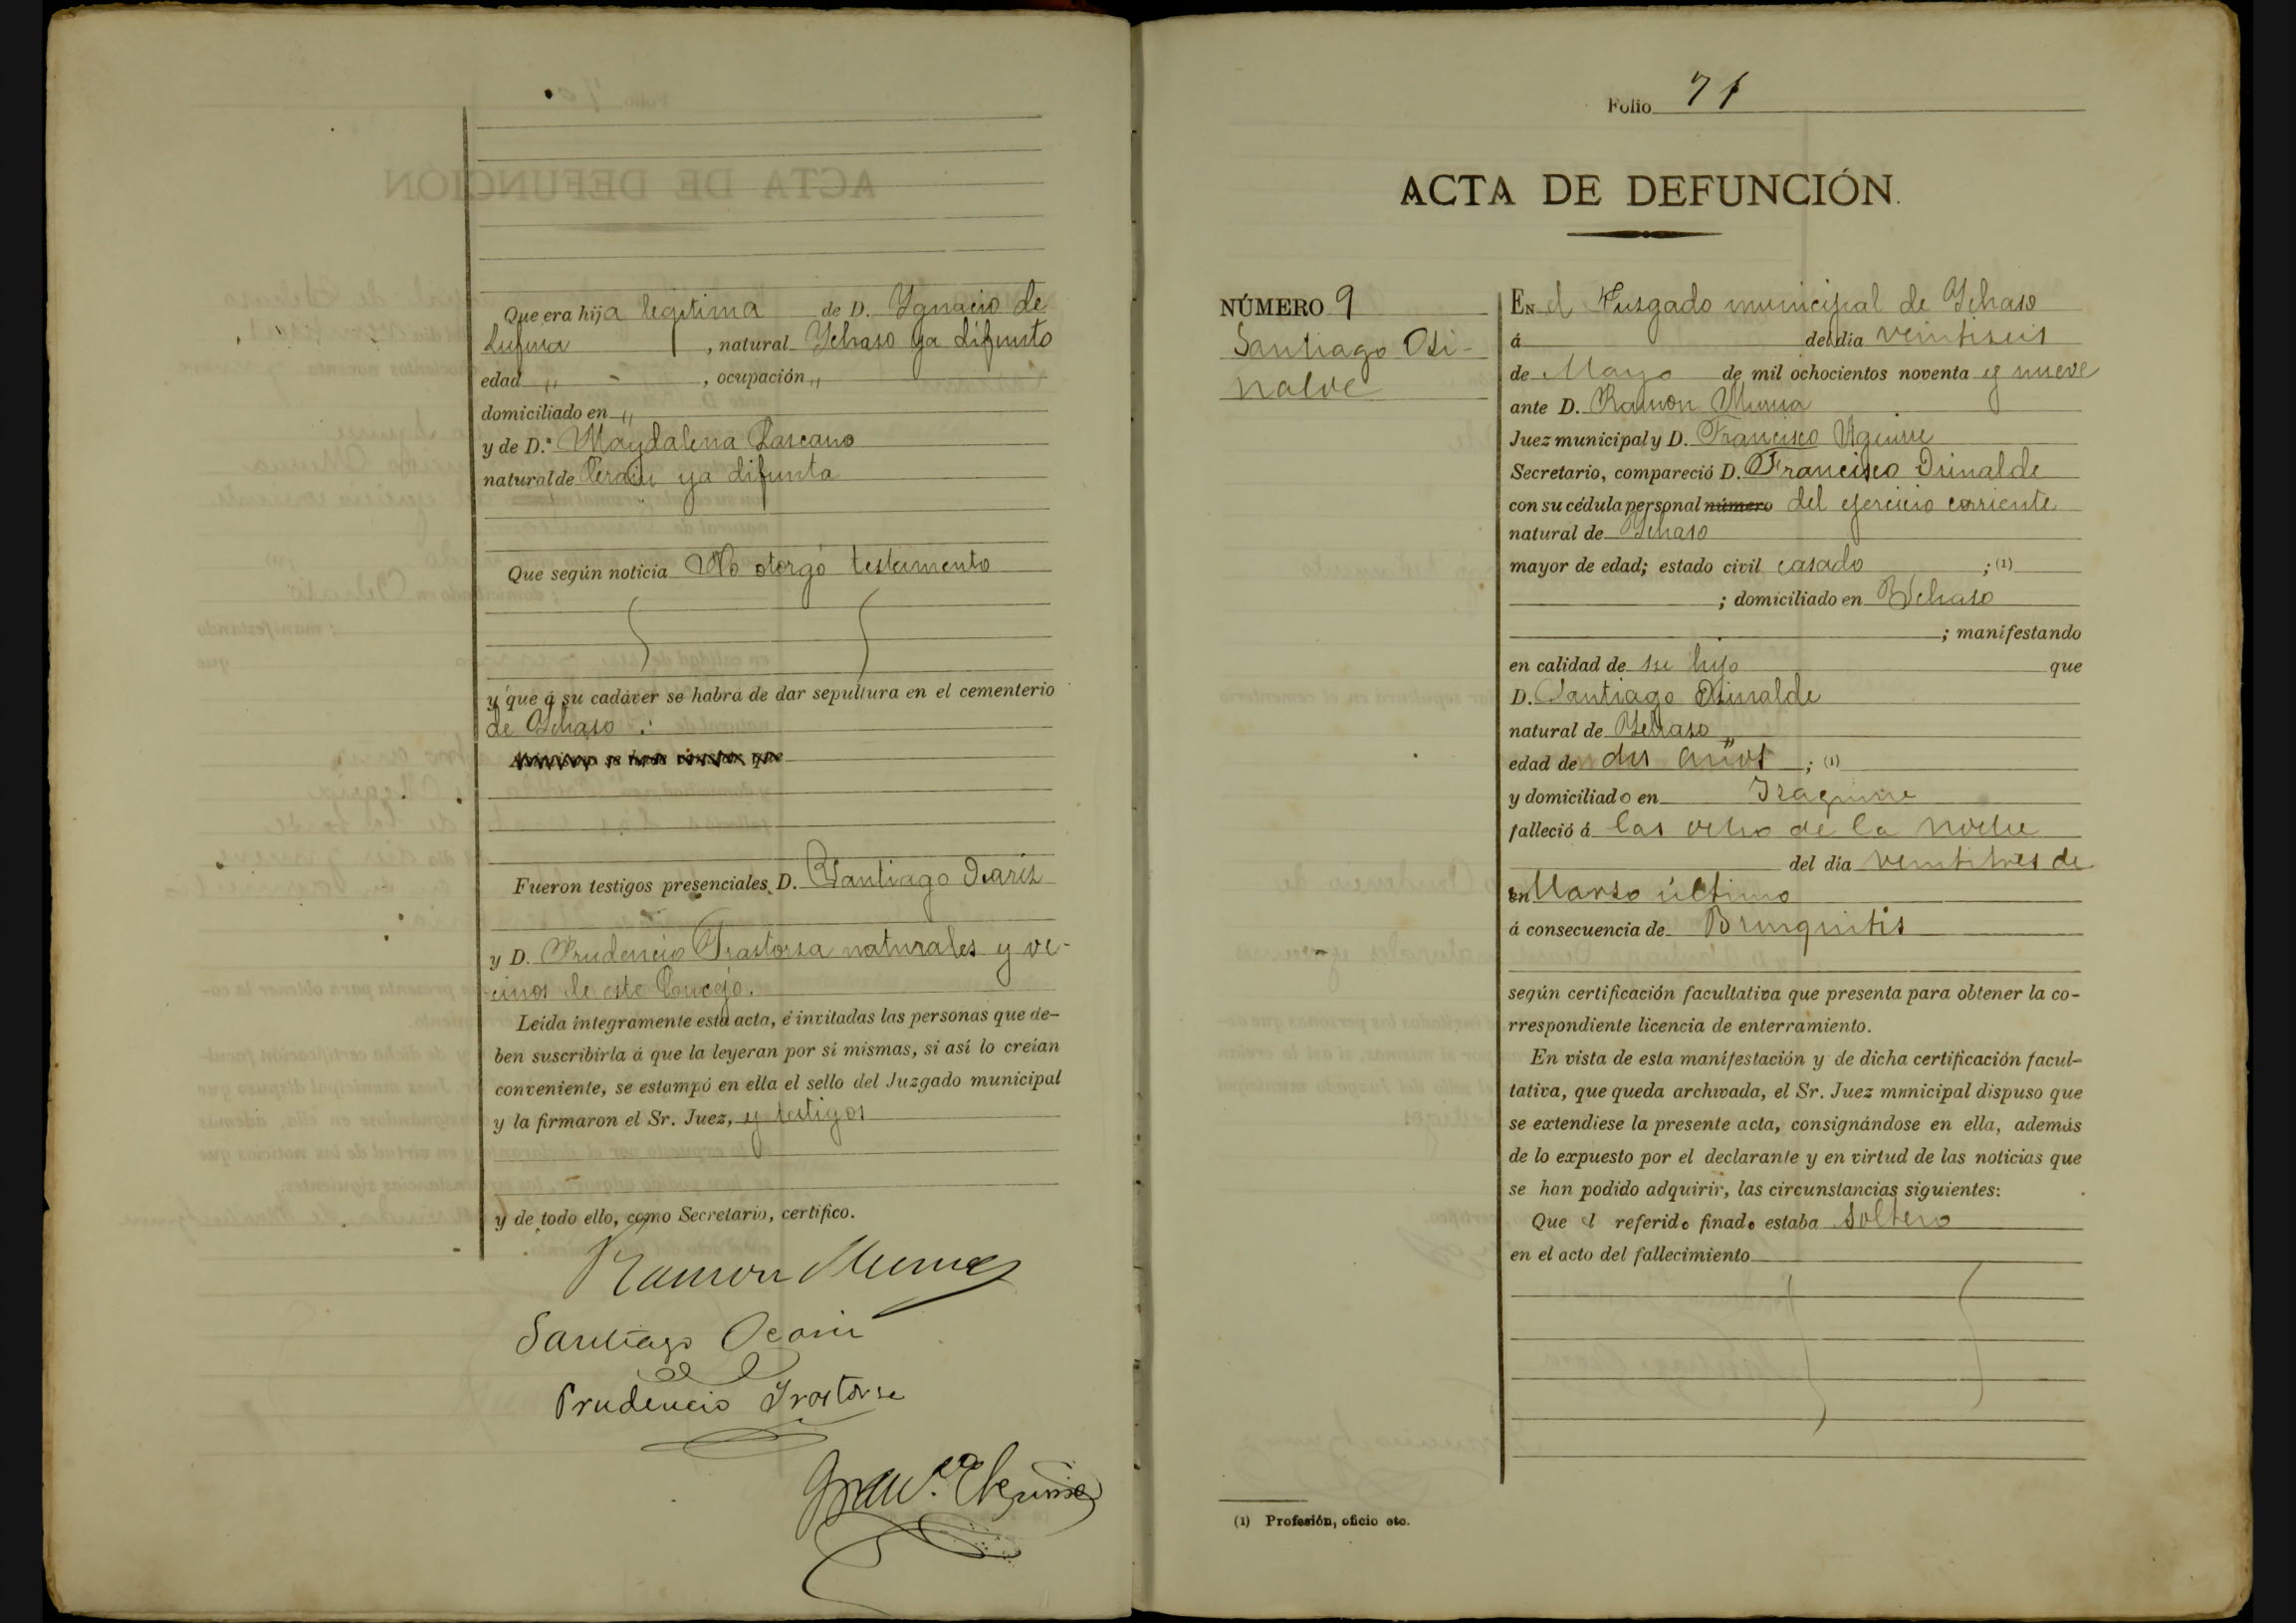 Que era hija legitima de D. Ygnacio de
, natural Ychaso ya difunto
edad " - , ocupación "
domiciliado en "
y de D.ª Magdalena Lascano
natural de ya difunta
Que según noticia No otorgó testamento
y que á su cadáver se habrá de dar sepultura en el cementerio
de Ychaso .
Asimismo se hace constar que
Fueron testigos presenciales, D. Santiago
y D. Prudencio Yrastorsa naturales y ve-
cinos de este Concejo.
Leída íntegramente esta acta, é invitadas las personas que de-
ben suscribirla á que la leyeran por sí mismas, si así lo creían
conveniente, se estampó en ella el sello del Juzgado municipal
y la firmaron el Sr. Juez, y testigos
y de todo ello, como Secretario, certifico.
Ramon Munua
Santiago
Prudencio Yrastorse
Folio 71
ACTA DE DEFUNCIÓN.
NÚMERO 9
Santiago Osi-
nalde
EN el Juzgado municipal de Ychaso
á del día veintiseis
de Mayo de mil ochocientos noventa y nueve
ante D. Ramon Munua
Juez municipal y D. Francisco Aguirre
Secretario, compareció D. Francisco Osinalde
con su cédula personal número del ejercicio corriente
natural de Ychaso
mayor de edad; estado civil casado ; (1)
; domiciliado en Ychaso
; manifestando
en calidad de su hijo que
D. Santiago Osinalde
natural de Ychaso
edad de dos años ; (1)
y domiciliado en
falleció á las ocho de la noche
del día veintitres de
en Marso último
á consecuencia de Brunquitis
según certificación facultativa que presenta para obtener la co-
rrespondiente licencia de enterramiento.
En vista de esta manifestación y de dicha certificación facul-
tativa, que queda archivada, el Sr. Juez municipal dispuso que
se extendiese la presente acta, consignándose en ella, además
de lo expuesto por el declarante y en virtud de las noticias que
se han podido adquirir, las circunstancias siguientes:
Que el referido finado estaba Soltero
en el acto del fallecimiento
(1) Profesión, oficio etc.